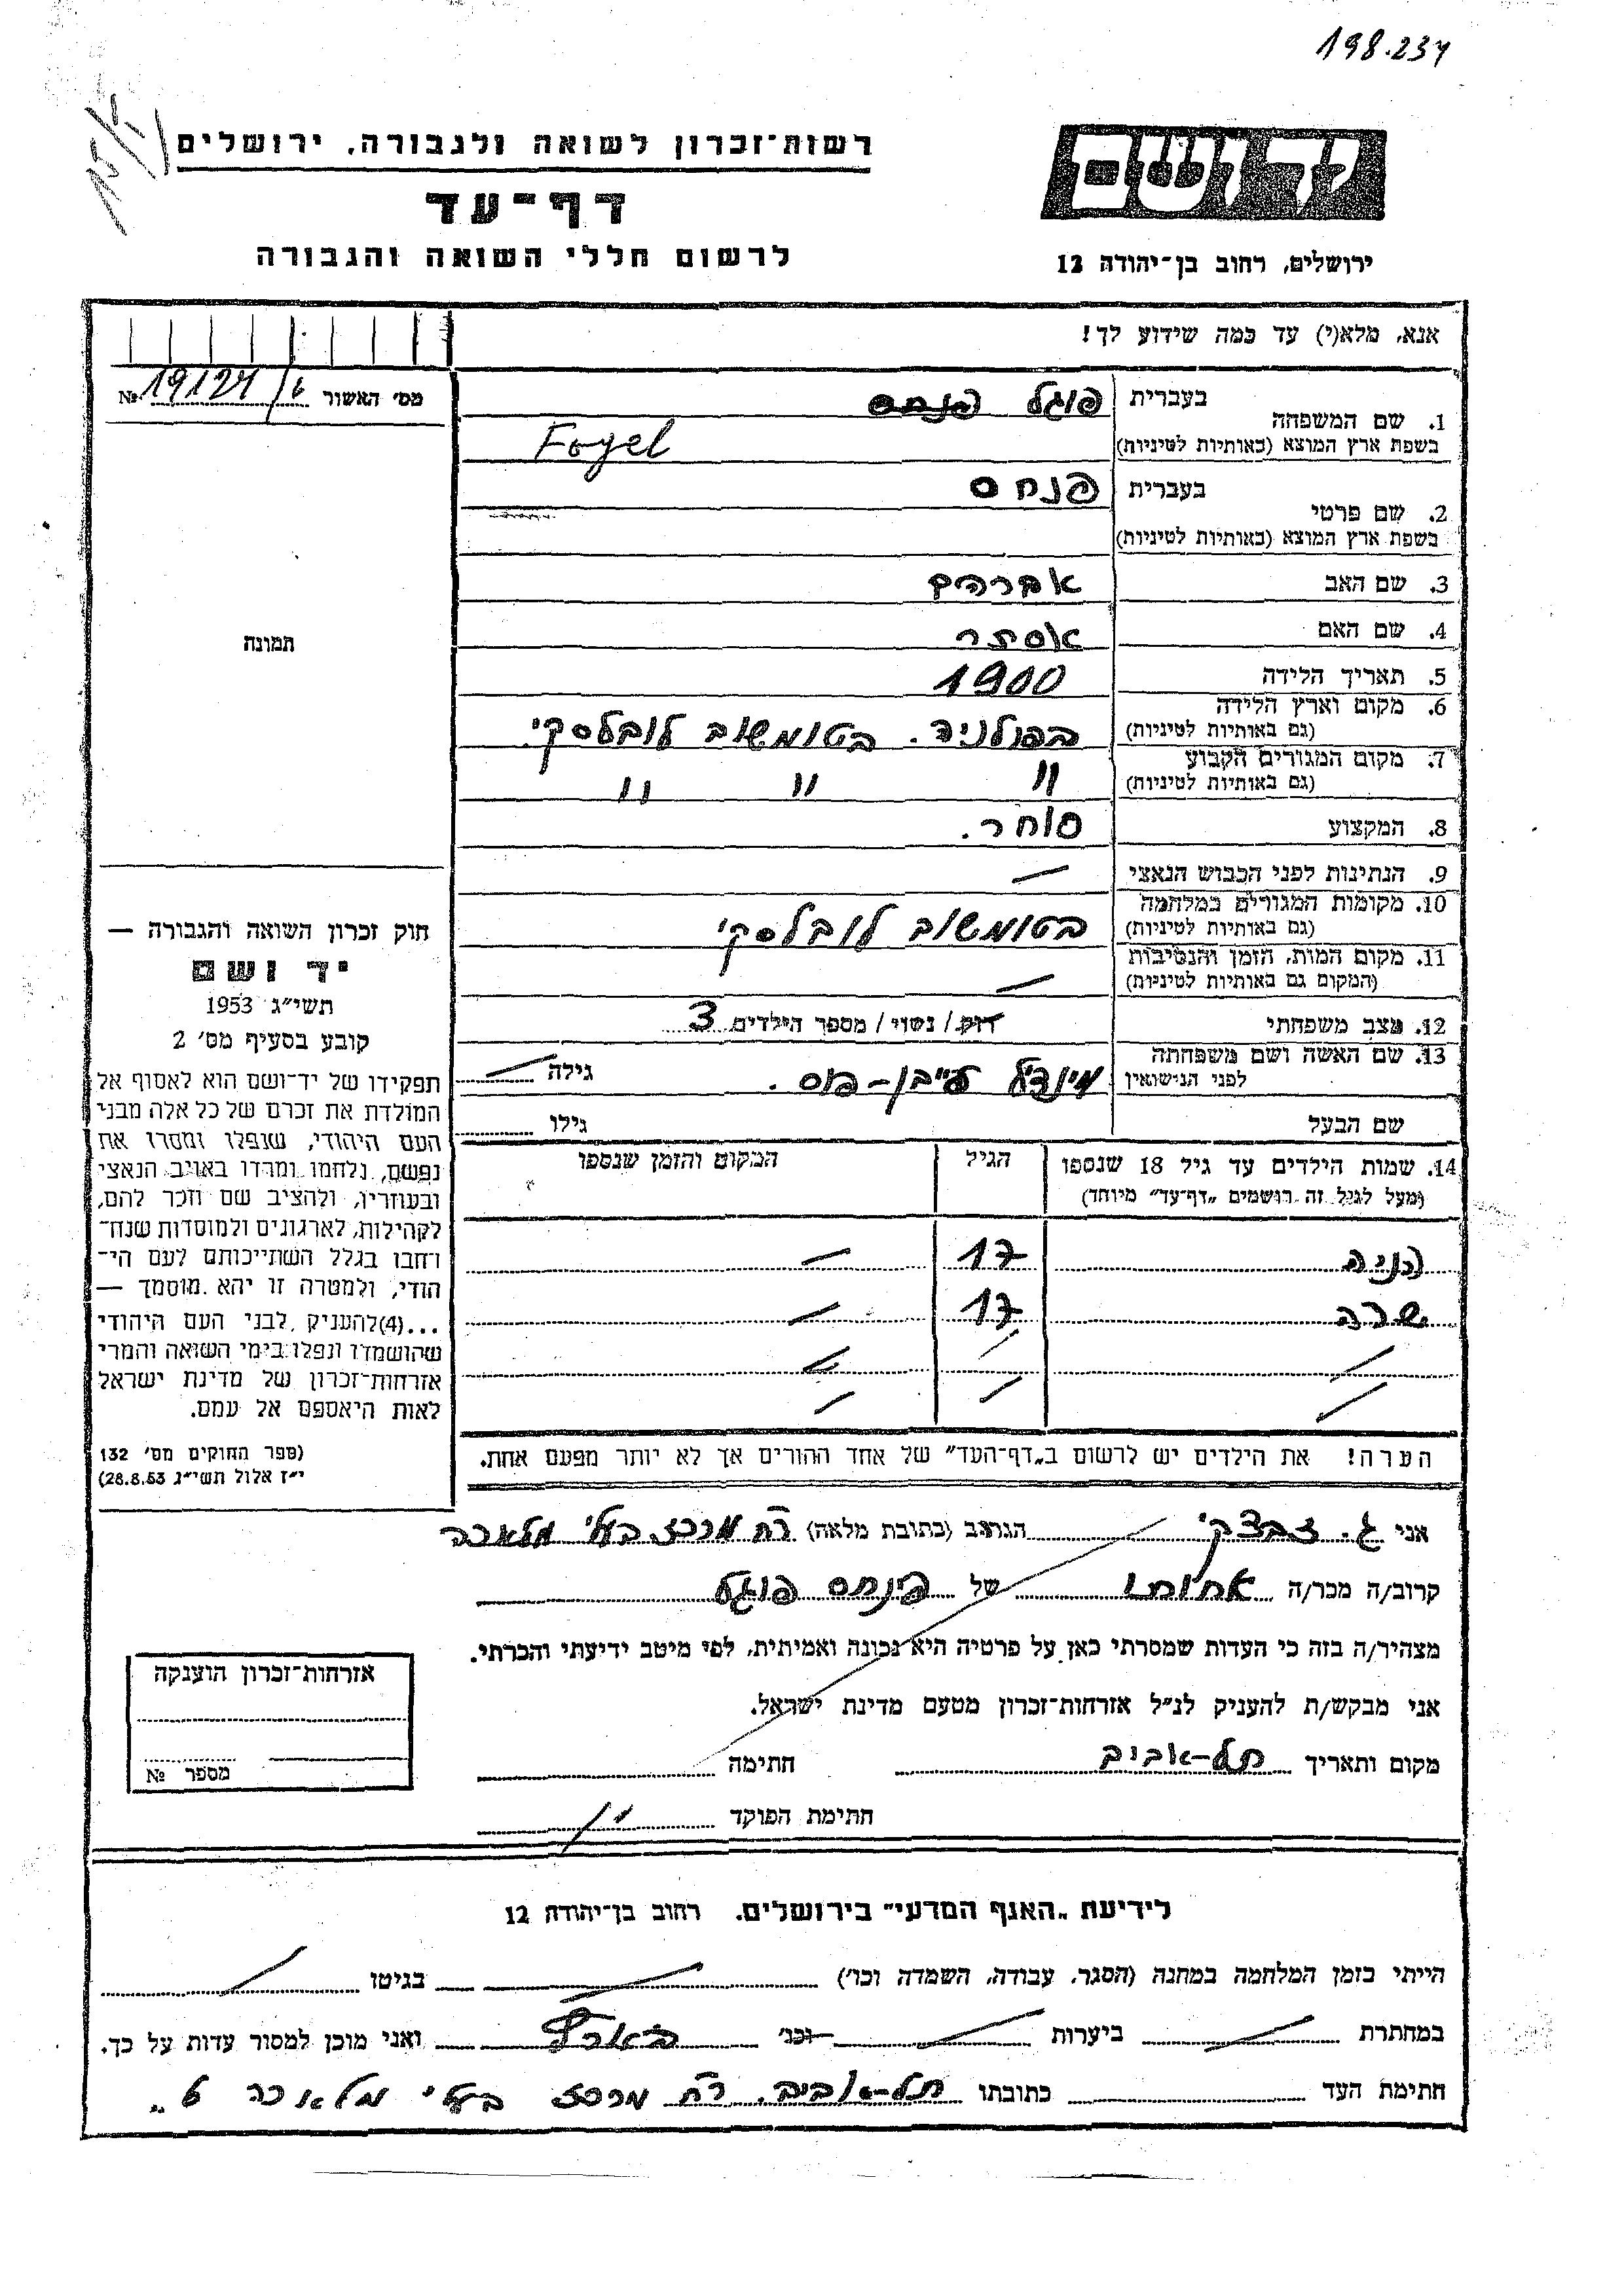 198.234
רשות־זכרון לשואה ולגבורה, ירושלים
דף־עד
לרשום חללי השואה והגבורה
יד ושם
ירושלים, רחוב בן־יהודה 12
אנא, מלא(י) עד כמה שידוע לך!
מס׳ האשור № 19124/6
1. שם המשפחה בעברית פוגל פנחס
בשפת ארץ המוצא (באותיות לטיניות) Fogel
2. שם פרטי בעברית פנחס
בשפת ארץ המוצא (באותיות לטיניות)
3. שם האב אברהם
4. שם האם אסתר
5. תאריך הלידה 1900
6. מקום וארץ הלידה (גם באותיות לטיניות) בפולניה. בטומשוב לובלסקי.
7. מקום המגורים הקבוע (גם באותיות לטיניות) " " "
8. המקצוע סוחר.
9. הנתינות לפני הכבוש הנאצי —
10. מקומות המגורים במלחמה (גם באותיות לטיניות) בטומשוב לובלסקי
11. מקום המות, הזמן והנסיבות (המקום גם באותיות לטיניות) —
12. מצב משפחתי רוק / נשוי / מספר הילדים 3
13. שם האשה ושם משפחתה לפני הנישואין מינדל גילה —
שם הבעל גילו
תמונה
חוק זכרון השואה והגבורה —
יד ושם
תשי״ג 1953
קובע בסעיף מס׳ 2
תפקידו של יד־ושם הוא לאסוף אל
המולדת את זכרם של כל אלה מבני
העם היהודי, שנפלו ומסרו את
נפשם, נלחמו ומרדו באויב הנאצי
ובעוזריו, ולהציב שם וזכר להם,
לקהילות, לארגונים ולמוסדות שנח־
רחבו בגלל השתייכותם לעם הי־
הודי, ולמטרה זו יהא מוסמך —
...(4) להעניק לבני העם היהודי
שהושמדו ונפלו בימי השואה והמרי
אזרחות־זכרון של מדינת ישראל
לאות היאספם אל עמם.
(ספר החוקים מס׳ 132
י״ז אלול תשי״ג 28.8.53)
14. שמות הילדים עד גיל 18 שנספו הגיל המקום והזמן שנספו
(ומעל לגיל זה רושמים „דף־עד״ מיוחד)
חניה 17 —
שרה 17 —
הערה! את הילדים יש לרשום ב„דף־העד״ של אחד ההורים אך לא יותר מפעם אחת.
אני ג. זבצקי הגרתב (כתובת מלאה) רח מרכז בעלי מלאכה
קרוב/ה מכר/ה אחותו של פינחס פוגל
מצהיר/ה בזה כי העדות שמסרתי כאן על פרטיה היא נכונה ואמיתית, לפי מיטב ידיעתי והכרתי.
אני מבקש/ת להעניק לנ״ל אזרחות־זכרון מטעם מדינת ישראל.
מקום ותאריך תל-אביב חתימה
חתימת הפוקד
אזרחות־זכרון הוענקה
מספר №
לידיעת „האגף המדעי״ בירושלים. רחוב בן־יהודה 12
הייתי בזמן המלחמה במחנה (הסגר, עבודה, השמדה וכו׳) בגיטו
במחתרת ביערות וכנ׳ בארץ ואני מוכן למסור עדות על כך.
חתימת העד כתובתו תל-אביב. רח מרכז בעלי מלאכה 6